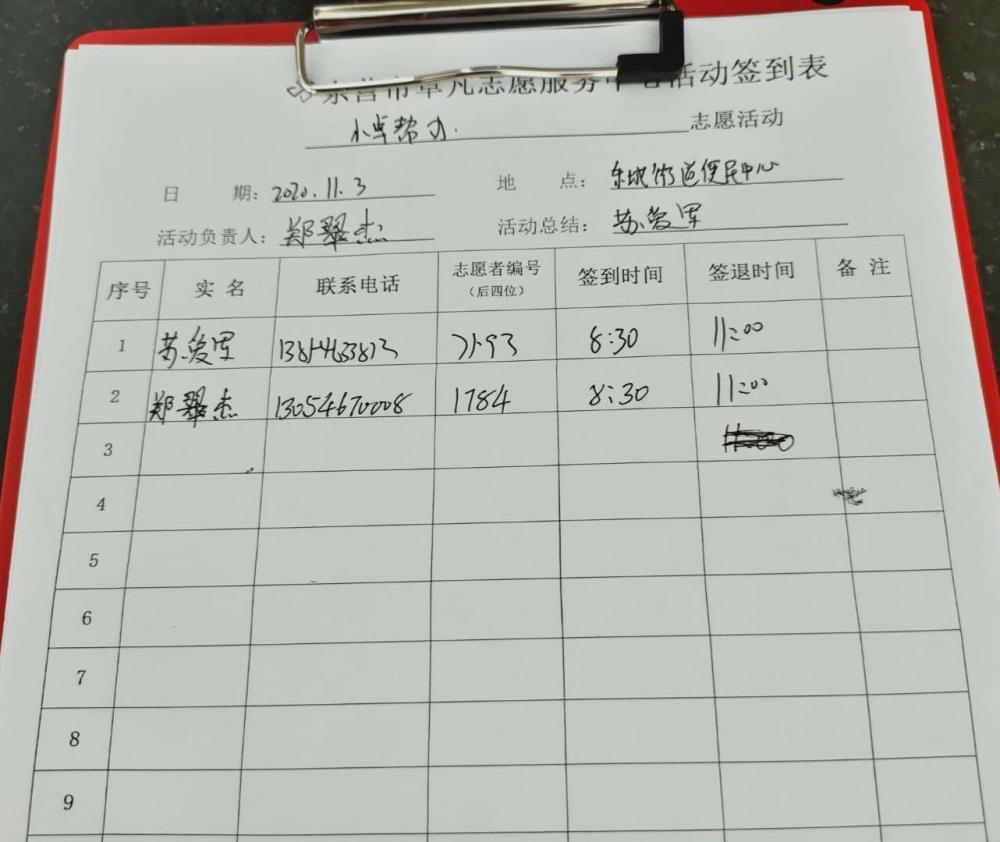 东营市卓凡志愿服务中心活动签到表
小卓帮办 志愿活动
日 期: 2020.11.3 地 点: 东城街道便民中心
活动负责人: 郑翠杰 活动总结: 苏爱军
序号 实名 联系电话 志愿者编号 (后四位) 签到时间 签退时间 备注
1 苏爱军 8:30 11:00
2 郑翠杰 13054670008 1784 8:30 11:00
3
4
5
6
7
8
9